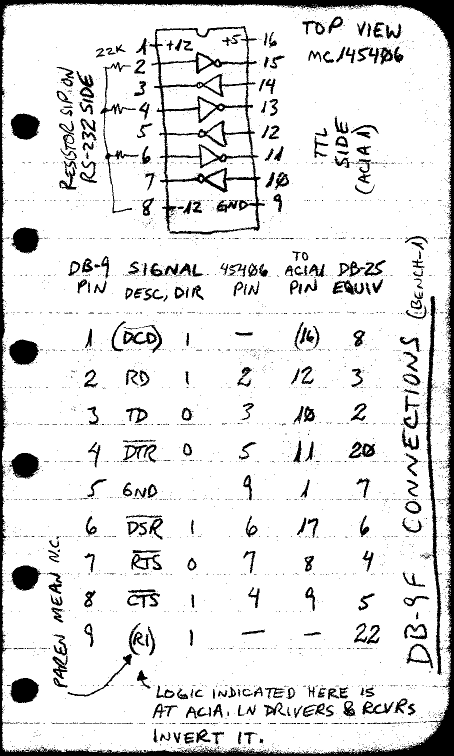 TOP VIEW
MC145406
22K
1 +12 +5 16
2 15
3 14
4 13
5 12
6 11
7 10
8 -12 GND 9
RESISTOR SIP ON
RS-232 SIDE
TTL
SIDE
(ACIA1)
DB-9 PIN SIGNAL DESC, DIR 45406 PIN TO ACIA1 PIN DB-25 EQUIV
1 (DCD) 1 — (16) 8
2 RD 1 2 12 3
3 TD 0 3 10 2
4 DTR 0 5 11 20
5 GND 9 1 7
6 DSR 1 6 17 6
7 RTS 0 7 8 4
8 CTS 1 4 9 5
9 (RI) 1 — — 22
PAREN MEAN N.C.
LOGIC INDICATED HERE IS
AT ACIA. LN DRIVERS & RCVRS
INVERT IT.
DB-9F CONNECTIONS (BENCH-1)